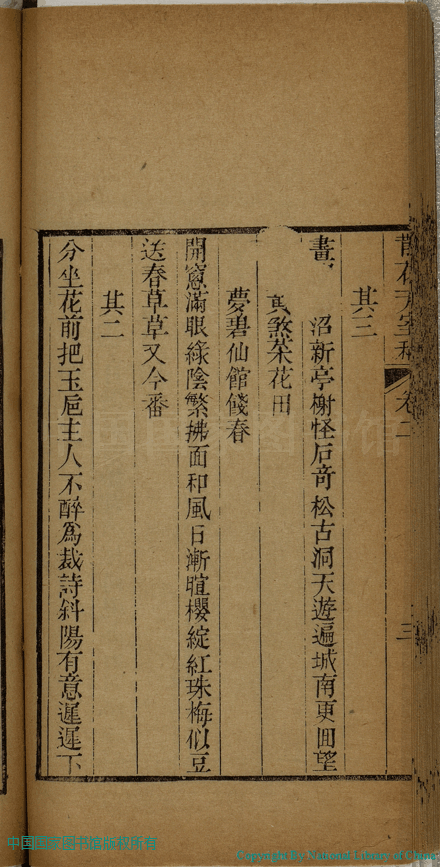 其三
畫 沼新亭榭怪石奇松古洞天遊遍城南更回望
真煞菜花田
夢碧仙館餞春
開窻滿眼綠陰繁拂面和風日漸暄櫻綻紅珠梅似豆
送春草草又今番
其二
分坐花前把玉巵主人不醉爲裁詩斜陽有意遲遲下
卷二
三
中国国家图书馆版权所有
Copyright By National Library of China